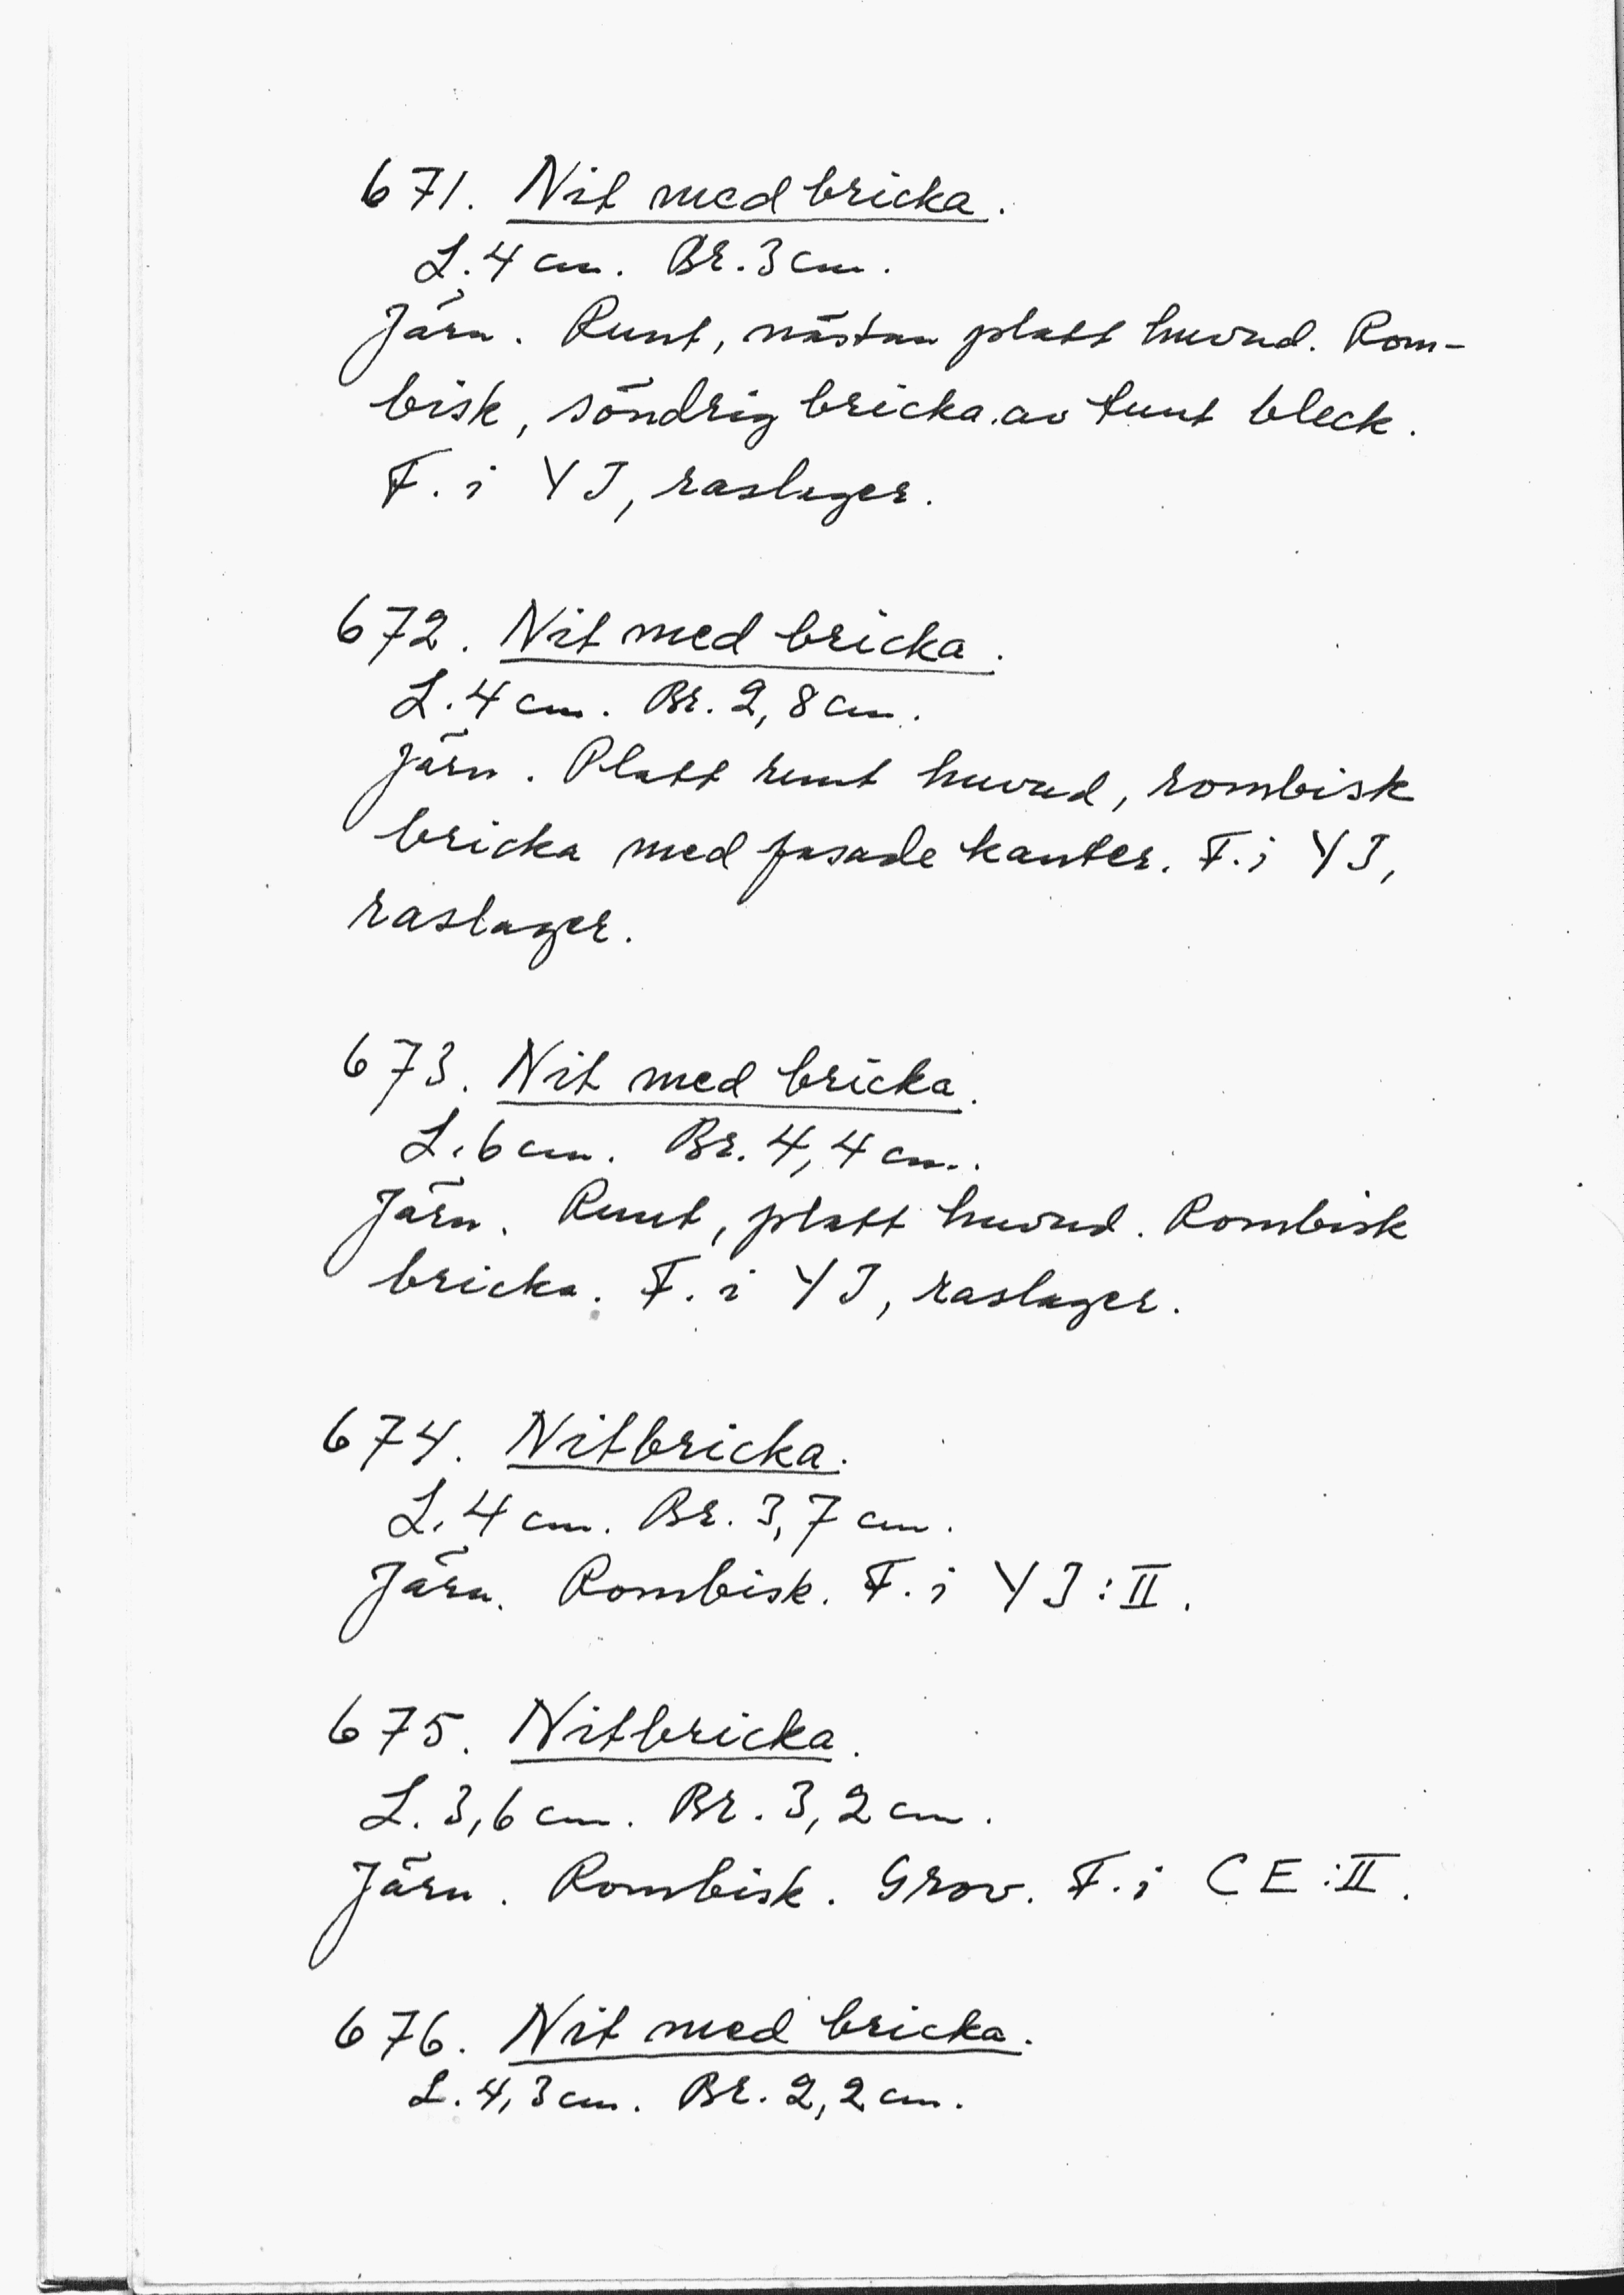 671. Nit med bricka.
L. 4 cm. Br. 3 cm.
Järn. Runt, nästan platt huvud. Rom-
bisk, söndrig bricka av tunt bleck.
F. i YJ, raslager.
672. Nit med bricka.
L. 4 cm. Br. 2,8 cm.
Järn. Platt runt huvud, rombisk
bricka med fasade kanter. F. i YJ,
raslager.
673. Nit med bricka.
L. 6 cm. Br. 4,4 cm.
Järn. Runt, platt huvud. Rombisk
bricka. F. i YJ, raslager.
674. Nitbricka.
L. 4 cm. Br. 3,7 cm.
Järn. Rombisk. F. i YJ:II.
675. Nitbricka.
L. 3,6 cm. Br. 3,2 cm.
Järn. Rombisk. Grov. F. i CE:II.
676. Nit med bricka.
L. 4,3 cm. Br. 2,2 cm.